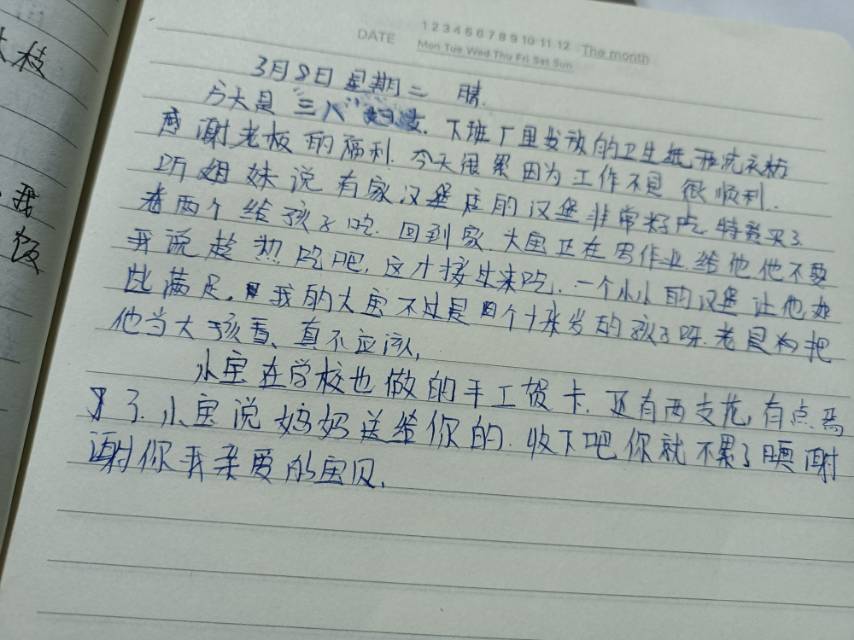 枝
我
饭
DATE
1 2 3 4 5 6 7 8 9 10 11 12 The month
Mon Tue Wed Thu Fri Sat Sun
3月8日 星期二 晴.
今天是"三八"妇女. 下班厂里发放的卫生纸
感谢老板的福利. 今天很累因为工作不是很顺利.
听姐妹说有家汉堡店的汉堡非常好吃. 特意买了
两个给孩子吃. 回到家. 大宝正在写作业. 给他他不要
我说趁热吃吧. 这才接过来吃. 一个小小的汉堡让他如
此满足. 我的大宝不过是个十来岁的孩子呀. 老是把
他当大孩看、真不应该,
小宝在学校也做的手工贺卡. 还有两支花, 有点焉
了. 小宝说妈妈送给你的. 收下吧你就不累了 谢
谢你我亲爱的宝贝.